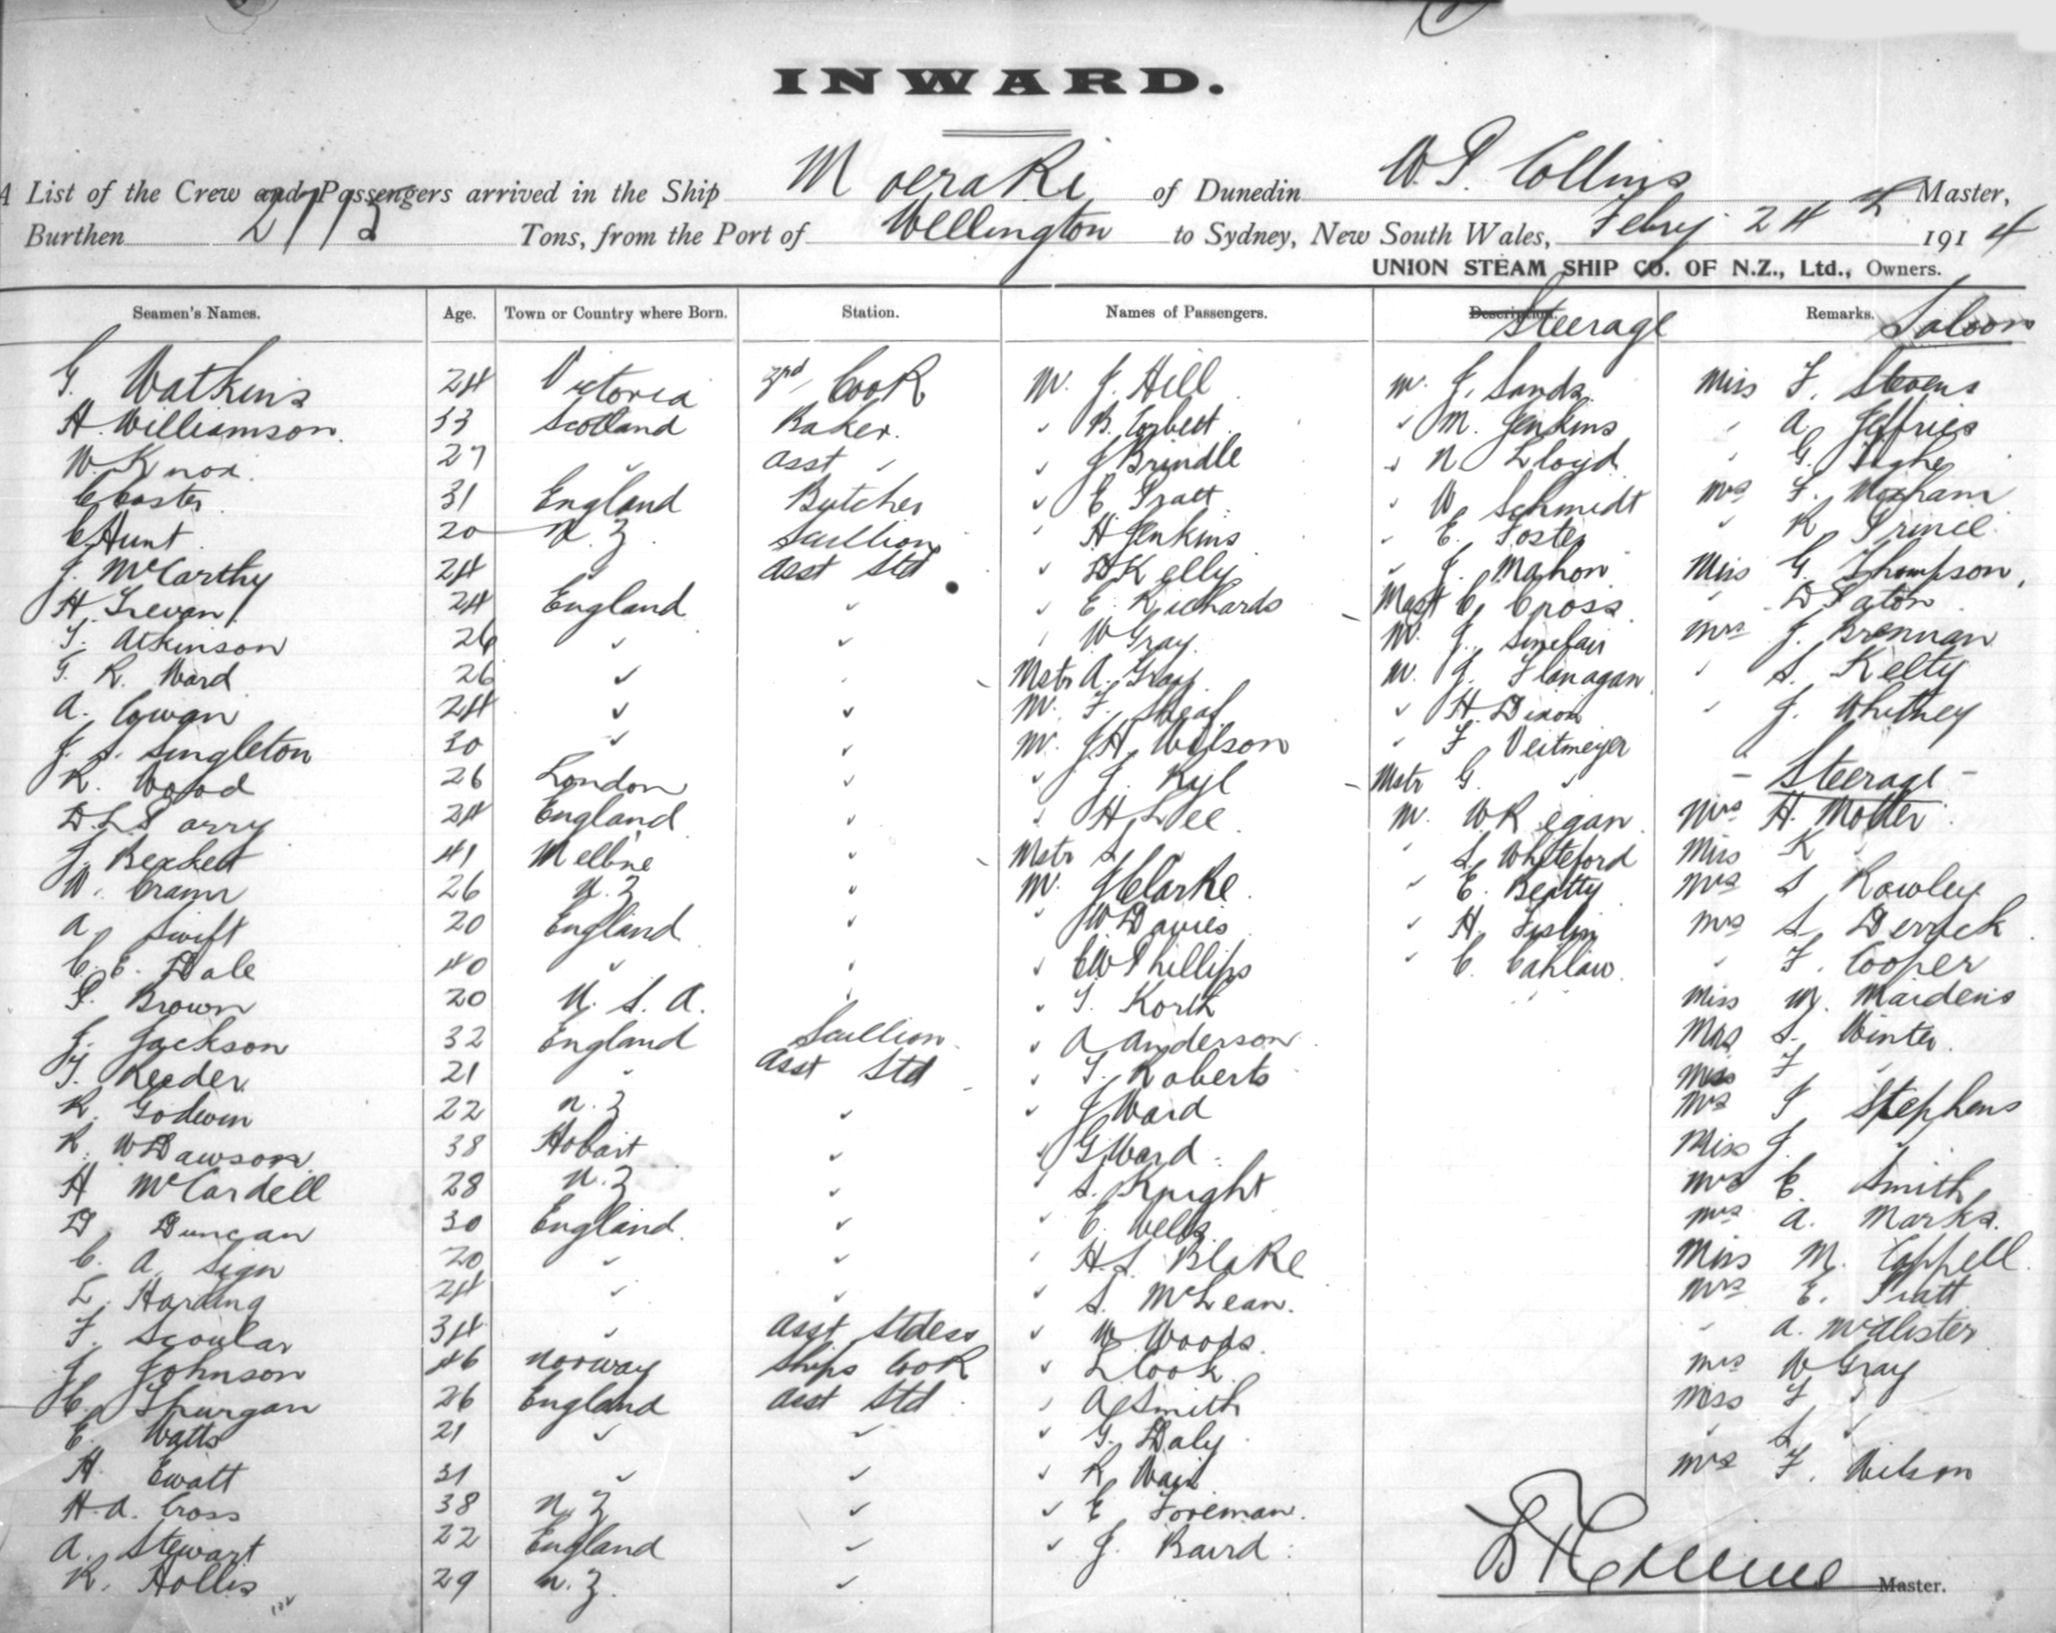 INWARD.
A List of the Crew and Passengers arrived in the Ship Moeraki of Dunedin W. P. Collins Master,
Burthen 2713 Tons, from the Port of Wellington to Sydney, New South Wales, Febry 24 1914
UNION STEAM SHIP CO. OF N.Z., Ltd., Owners.
Seamen's Names. Age. Town or Country where Born. Station. Names of Passengers. Description. Steerage Remarks. Saloon
G. Watkins 24 Victoria 3rd Cook Mr. J. Hill Mr. J. Sands Miss F. Stevens
H. Williamson 33 Scotland Baker. " B. Corbett " M. Jenkins " A. Jeffries
W. Knox 27 " Asst " " J Brindle " N. Lloyd " G. Tighe
C Coster 31 England Butcher " E Pratt " W. Schmidt Mrs F. Moxham
C Hunt 20 N.Z. Scullion " H Jenkins " E. Foster " R. Prince
J. McCarthy 24 " Asst Std " D Kelly " J. Mahon Miss G. Thompson
H. Trevan 24 England " " E. Richards Mast C. Cross " D Paton
T. Atkinson 26 " " " W Gray Mr J. Sinclair Mrs J. Brennan
T. R. Ward 26 " " Mstr A. Gray Mr. J. Flanagan " S. Kelty
A. Cowan 24 " " Mr. F. " H. Dixon " J. Whitney
J. S. Singleton 30 " " Mr. J H. Wilson " F. Veitmeyer
R. Wood 26 London " " J. Kyl Mstr G. " - Steerage -
D. L. Parry 24 England " " H. Lee Mr. W Regan Mrs H. Motter
J. Beckett 41 Melbne " Mstr S. " " S. Whiteford Miss K "
W. Cramr 26 N.Z " Mr. J Clarke " E. Beatty Mrs S Rowley
A. Swift 20 England " " W Davies " H. Mrs S Derrick
C. E. Dale 40 " " " C W Phillips " C. " F. Cooper
P. Brown 20 U.S.A. " " T. Korth Miss M. Maidens
J. Jackson 32 England Scullion " A Anderson Mrs S. Winter
T. Reeder 21 " Asst Std " T. Roberts Miss F "
R. Godwin 22 N.Z " " J Ward Mrs J Stephens
R. W Dawson 38 Hobart " " G Ward Miss J. "
H McCardell 28 N.Z " " S. Knight Mrs E. Smith
D. Duncan 30 England " " C. Wells Mrs A. Marks
C. A. Sign 20 " " " H. S. Blake Miss M. Coppell
L. Harding 24 " " " S. McLean. Mrs E. Pratt
F. Scoular 34 " Asst Stdess " W Woods " A. McAlister
J. Johnson 46 Norway Ships Cook " L Cook Mrs W Gray
C. Spurgan 26 England Asst Std " A Smith Miss F "
E. Watts 21 " " " G. Daly " S "
H. Ewatt 31 " " " R. Wait Mrs F. Wilson
H. A. Cross 38 N.Z " " E Foreman.
A. Stewart 22 England " " J. Baird.
R. Hollis 29 N.Z. "
W P Collins Master.